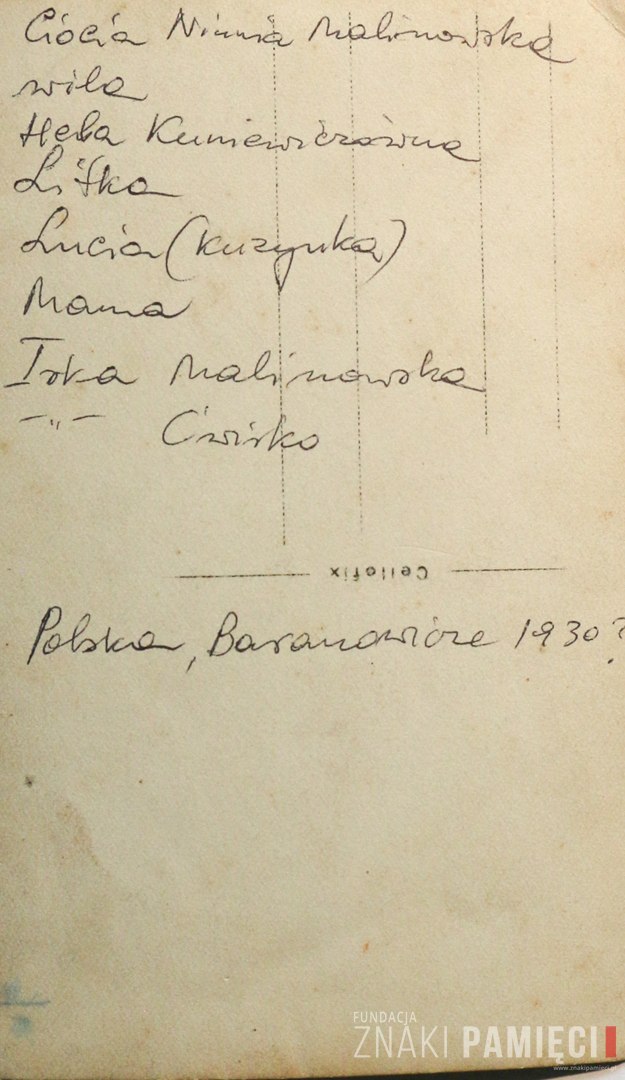 Ciocia Niunia Malinowska
wila
Hela Kuniewiczówna
Litka
Lucia (kuzynka)
Mama
Iska Malinowska
–"– Ćwirko
Cellofix
Polska, Baranowicze 1930?
FUNDACJA
ZNAKI PAMIĘCI
www.znakipamieci.pl